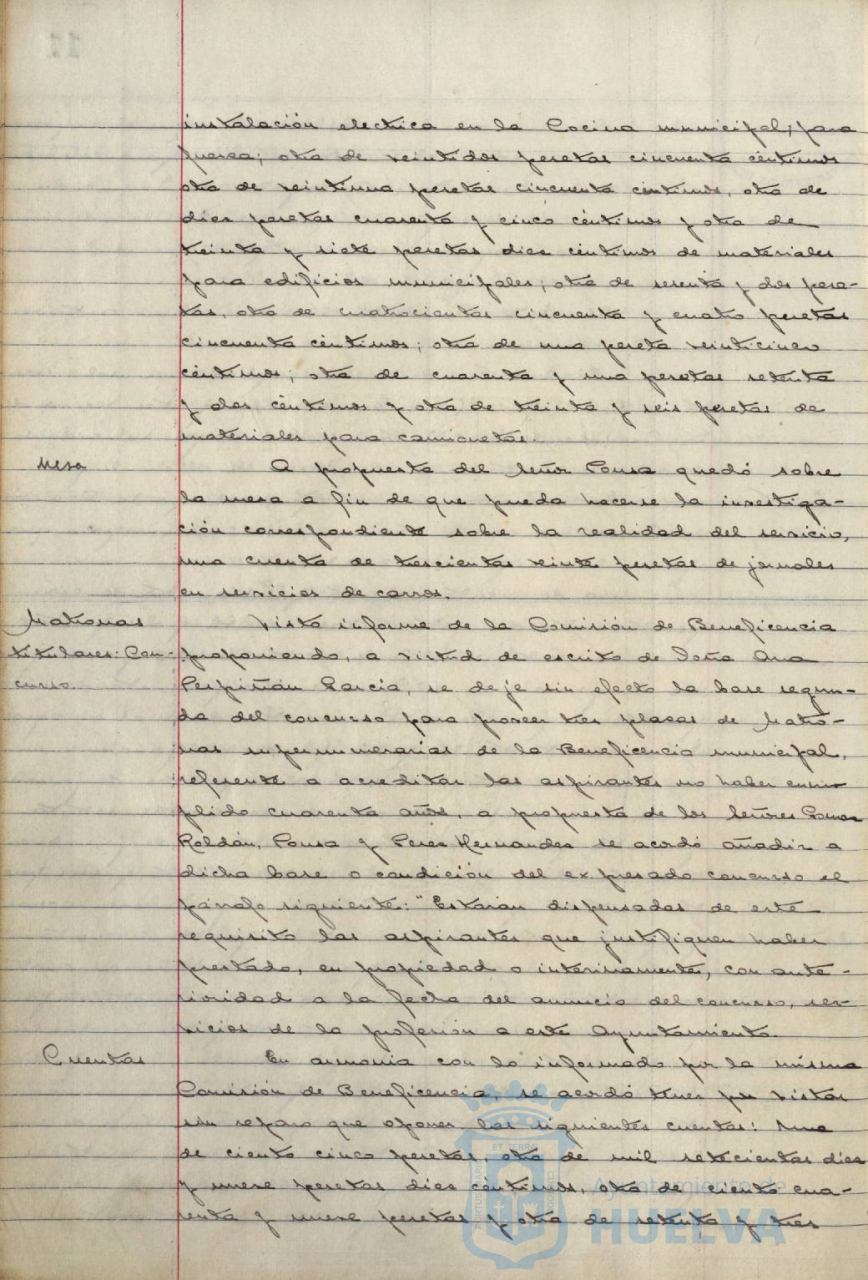 instalación electrica en la Cocina municipal; para
fuerza; otra de veintidos pesetas cincuenta céntimos
otra de veintiuna pesetas cincuenta centimos, otra de
diez pesetas cuarenta y cinco céntimos y otra de
treinta y siete pesetas diez céntimos de materiales
para edificios municipales; otra de sesenta y dos pese-
tas, otra de cuatrocientas cincuenta y cuatro pesetas
cincuenta céntimos; otra de una peseta veinticinco
céntimos; otra de cuarenta y una pesetas setenta
y dos céntimos y otra de treinta y seis pesetas de
materiales para camionetas.
Mesa
A propuesta del Señor Ponsa quedó sobre
la mesa a fin de que pueda hacerse la investiga-
ción correspondiente sobre la realidad del servicio,
una cuenta de trescientas veinte pesetas de jornales
en servicios de carros.
Matronas
titulares: Con-
curso.
Visto informe de la Comisión de Beneficencia
proponiendo, a virtud de escrito de Doña Ana
Perpiñán García, se deje sin efecto la base segun-
da del concurso para proveer tres plazas de Matro-
nas supernumerarias de la Beneficencia municipal,
referente a acreditar las aspirantes no haber cum-
plido cuarenta años, a propuesta de los Señores Gomez
Roldán, Ponsa y Perez Hernandez se acordó añadir a
dicha base o condición del expresado concurso el
párrafo siguiente: "Estarán dispensadas de este
requisito las aspirantes que justifiquen haber
prestado, en propiedad o interinamente, con ante-
rioridad a la fecha del anuncio del concurso, ser-
vicios de la profesión a este Ayuntamiento.
Cuentas
En armonía con lo informado por la misma
Comisión de Beneficencia, se acordó tener por vistas
sin reparo que oponer las siguientes cuentas: Una
de ciento cinco pesetas, otra de mil setecientas diez
y nueve pesetas diez céntimos, otra de ciento cua-
renta y nueve pesetas y otra de setenta y tres
Ayuntamiento de
HUELVA